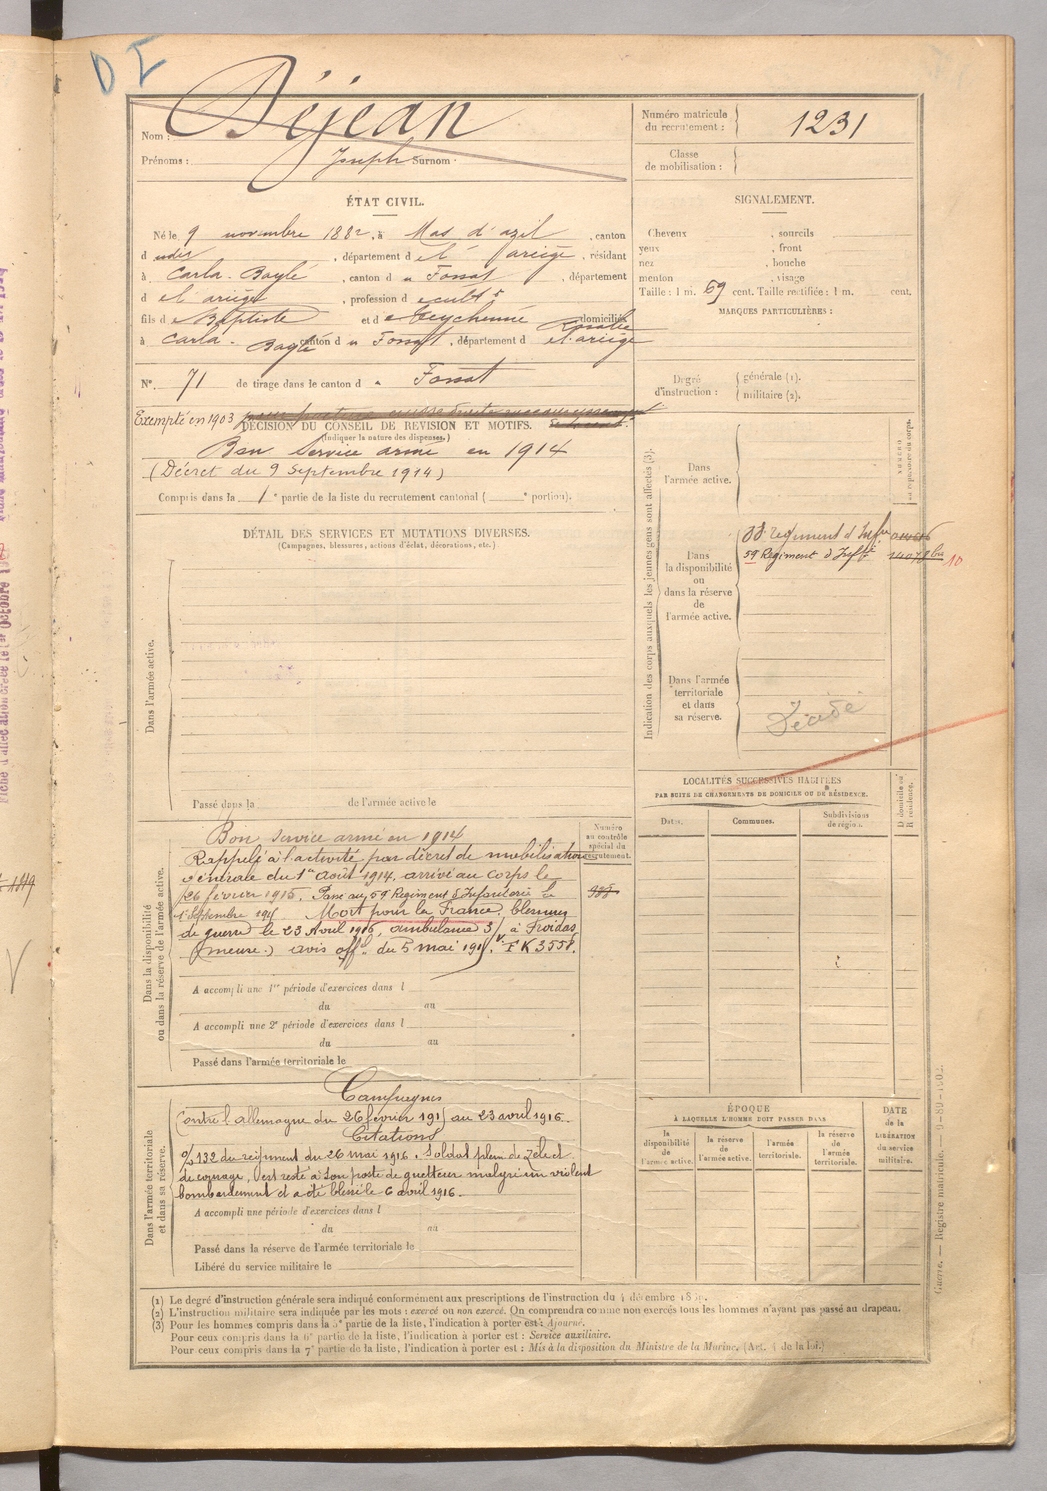 D I
Nom : Déjean
Prénoms : Joseph Surnom
Numéro matricule du recrutement : 1231
Classe de mobilisation :
ÉTAT CIVIL.
Né le 9 novembre 1882, à Mas d'azil, canton
d udit, département de l'ariège, résidant
à Carla-Bayle, canton du Fossat, département
de l'ariège, profession de cultr
fils de Baptiste et de Teychenné Rosalie domiciliés
à Carla-Bayle canton du Fossat, département de l'ariège
SIGNALEMENT.
Cheveux , sourcils
yeux , front
nez , bouche
menton , visage
Taille : 1 m. 69 cent. Taille rectifiée : 1 m. cent.
MARQUES PARTICULIÈRES :
N° 71 de tirage dans le canton d u Fossat
Degré d'instruction : générale (1).
militaire (2).
Exempté en 1903
DÉCISION DU CONSEIL DE RÉVISION ET MOTIFS.
(Indiquer la nature des dispenses.)
Bon Service armé en 1914
(Décret du 9 Septembre 1914)
Compris dans la 1e partie de la liste du recrutement cantonal ( e portion).
DÉTAIL DES SERVICES ET MUTATIONS DIVERSES.
(Campagnes, blessures, actions d'éclat, décorations, etc.)
Dans l'armée active.
Passé dans la de l'armée active le
Indication des corps auxquels les jeunes gens sont affectés (3).
NUMÉRO
Dans l'armée active.
Dans la disponibilité ou dans la réserve de l'armée active.
régiment d'Infie
59 Régiment d'Infie
10
Dans l'armée territoriale et dans sa réserve.
Décédé
LOCALITÉS SUCCESSIVES HABITÉES
PAR SUITE DE CHANGEMENTS DE DOMICILE OU DE RÉSIDENCE.
Dates.
Communes.
Subdivisions de région.
D domicile ou R résidence.
Dans la disponibilité ou dans la réserve de l'armée active.
Numéro au contrôle spécial du recrutement.
Bon service armé en 1914
Rappelé à l'activité par décret de mobilisation
générale du 1er Août 1914, arrivé au corps le
26 février 1915. Passé au 59 Régiment d'Infanterie le
1 Septembre 191 Mort pour la France, blessures
de guerre le 23 Avril 1916, ambulance 3/ à Froidos
(meuse.) avis offel du 5 mai 191 . FK 3558.
A accompli une 1re période d'exercices dans l
du au
A accompli une 2e période d'exercices dans l
du au
Passé dans l'armée territoriale le
Dans l'armée territoriale et dans sa réserve.
Campagnes
Contre l'allemagne du 26 février 1915 au 23 avril 1916.
Citations
O/ 132 du régiment du 26 mai 1916. Soldat plein de zèle et
de courage, s'est resté à son poste de guetteur malgré un violent
bombardement et a été blessé le 6 avril 1916.
A accompli une période d'exercices dans l
du au
Passé dans la réserve de l'armée territoriale le
Libéré du service militaire le
ÉPOQUE
À LAQUELLE L'HOMME DOIT PASSER DANS
la disponibilité de l'armée active.
la réserve de l'armée active.
l'armée territoriale.
la réserve de l'armée territoriale.
DATE de la LIBÉRATION du service militaire.
(1) Le degré d'instruction générale sera indiqué conformément aux prescriptions de l'instruction du 4 décembre
(2) L'instruction militaire sera indiquée par les mots : exercé ou non exercé. On comprendra comme non exercés tous les hommes n'ayant pas passé au drapeau.
(3) Pour les hommes compris dans la 5e partie de la liste, l'indication à porter est : Ajourné.
Pour ceux compris dans la 6e partie de la liste, l'indication à porter est : Service auxiliaire.
Pour ceux compris dans la 7e partie de la liste, l'indication à porter est : Mis à la disposition du Ministre de la Marine. (Art. 4 de la loi.)
Guerre. — Registre matricule. — 9-89-1902.